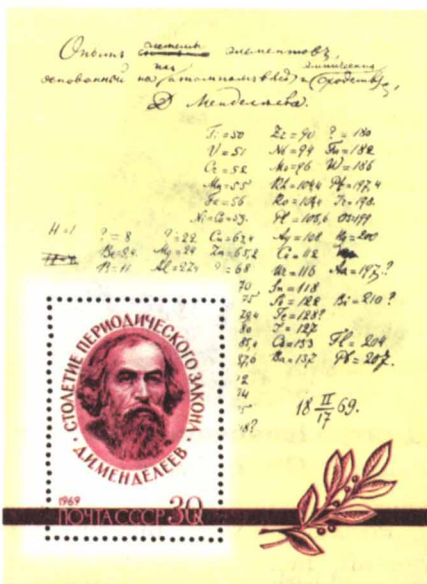 Опытъ системы элементовъ,
основанной на ихъ атомномъ вѣсѣ и химическомъ сходствѣ,
Д Менделѣева.
Ti=50 Zr=90 ?=180
V=51 Nb=94 Ta=182
Cr=52 Mo=96 W=186
Mn=55 Rh=104,4 Pt=197,4
Fe=56 Ru=104,4 Ir=198.
Ni=Co=59. Pl=106,6 Os=199
H=1 ?=8 ?=22 Cu=63,4 Ag=108 Hg=200
Be=9,4 Mg=24 Zn=65,2 Cd=112
B=11 Al=27,4 ?=68 Ur=116 Au=197?
70 Sn=118
75 Sb=122 Bi=210?
79,4 Te=128?
80 I=127
85,4 Cs=133 Tl=204
87,6 Ba=137 Pb=207.
18 II/17 69.
СТОЛЕТИЕ ПЕРИОДИЧЕСКОГО ЗАКОНА
· Д.И.МЕНДЕЛЕЕВ ·
1969
ПОЧТА СССР 30К